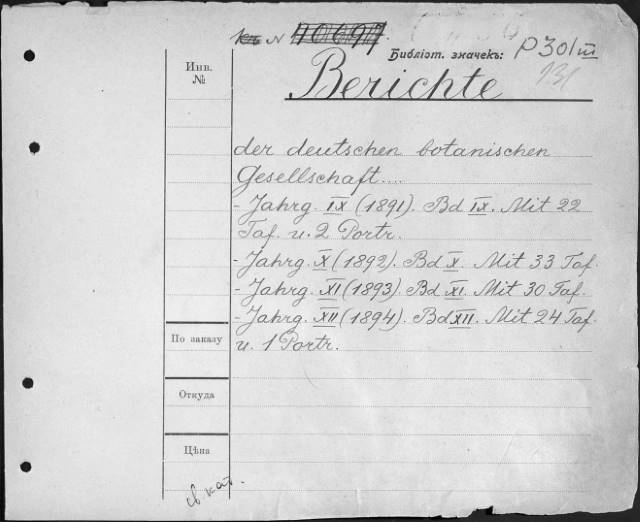 къ N 40697.
Библіот. значекъ: P301 III
131
Инв.
№
Berichte
der deutschen botanischen
Gesellschaft....
- Jahrg. IX (1891). Bd IX. Mit 22
Taf. u. 2 Portr.
- Jahrg. X (1892). Bd X. Mit 33 Taf.
- Jahrg. XI (1893). Bd XI. Mit 30 Taf.
- Jahrg. XII (1894). Bd XII. Mit 24 Taf.
u. 1 Portr.
По заказу
Откуда
Цѣна
св кат.